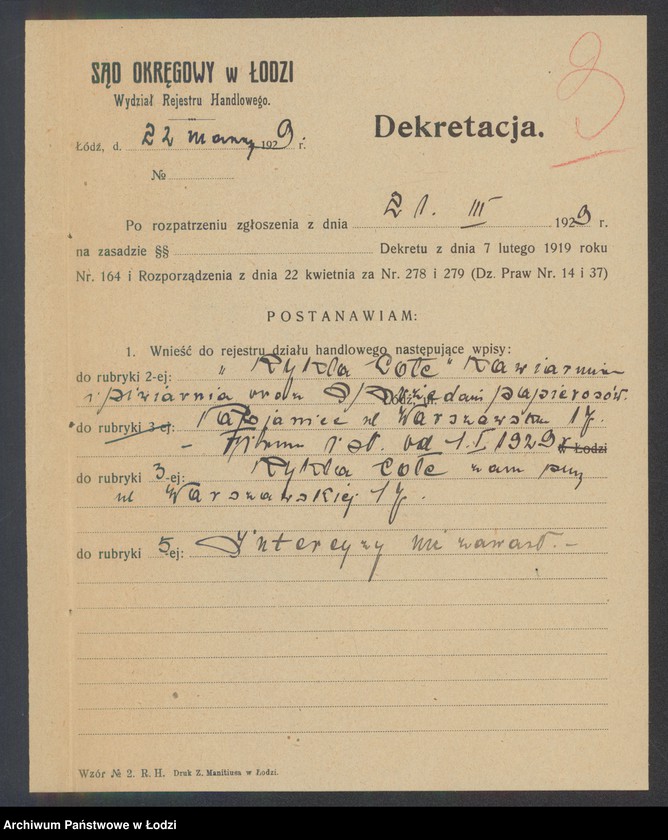 SĄD OKRĘGOWY w ŁODZI
Wydział Rejestru Handlowego.
Dekretacja.
Łódź, d. 22 marzy 1929 r.
№
Po rozpatrzeniu zgłoszenia z dnia 21. III 1929 r.
na zasadzie §§ Dekretu z dnia 7 lutego 1919 roku
Nr. 164 i Rozporządzenia z dnia 22 kwietnia za Nr. 278 i 279 (Dz. Praw Nr. 14 i 37)
POSTANAWIAM:
1. Wnieść do rejestru działu handlowego następujące wpisy:
do rubryki 2-ej: „Rykla Cole" Kawiarnia
i piwiarnia oraz sprzedaż papierosów.
do rubryki 3-ej: ul Warszawska 17.
Firma ist. od 1.I 1929 r w Łodzi
do rubryki 3-ej: Rykla Cole zam przy
ul Warszawskiej 17.
do rubryki 5-ej: Intercyzy nie zawarł.-
Wzór № 2. R. H. Druk Z. Manitiusa w Łodzi.
Archiwum Państwowe w Łodzi